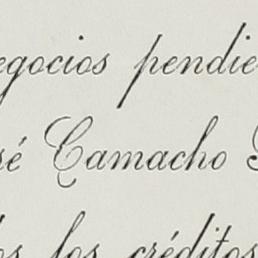 egocios pendie
sé Camacho
os los créditos